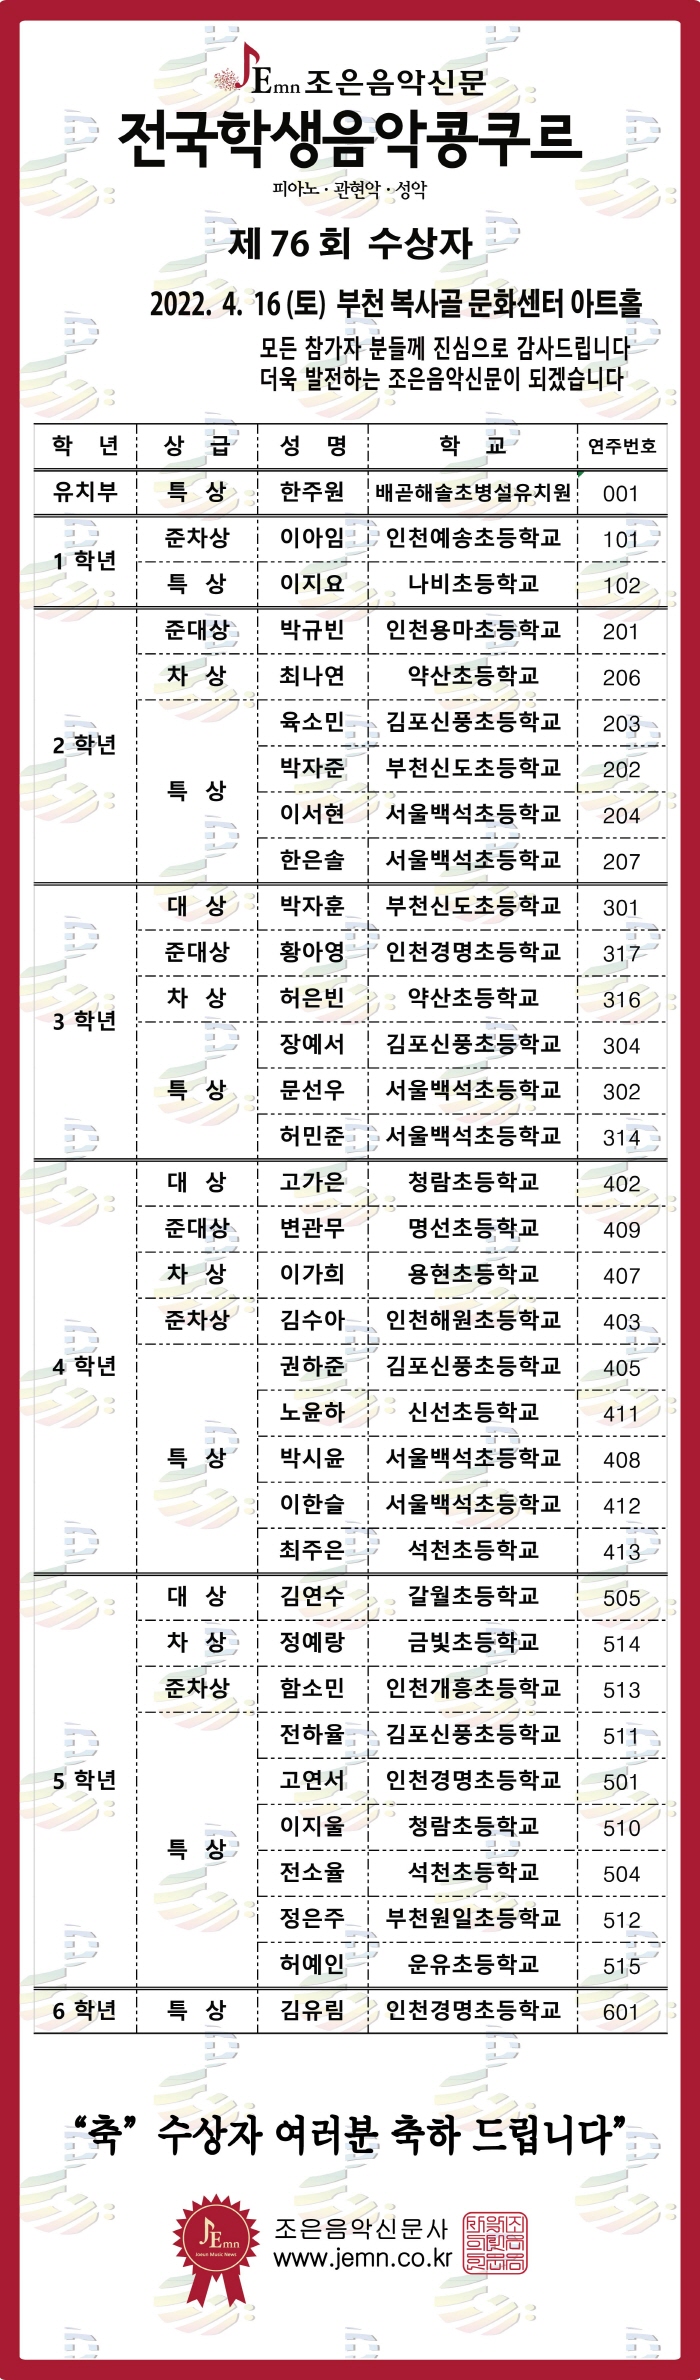 Emn 조은음악신문
전국학생음악콩쿠르
피아노 · 관현악 · 성악
제 76 회 수상자
2022. 4. 16 (토) 부천 복사골 문화센터 아트홀
모든 참가자 분들께 진심으로 감사드립니다
더욱 발전하는 조은음악신문이 되겠습니다
학 년 상 급 성 명 학 교 연주번호
유치부 특 상 한주원 배곧해솔초병설유치원 001
1 학년 준차상 이아임 인천예송초등학교 101
특 상 이지요 나비초등학교 102
2 학년 준대상 박규빈 인천용마초등학교 201
차 상 최나연 약산초등학교 206
특 상 육소민 김포신풍초등학교 203
박자준 부천신도초등학교 202
이서현 서울백석초등학교 204
한은솔 서울백석초등학교 207
3 학년 대 상 박자훈 부천신도초등학교 301
준대상 황아영 인천경명초등학교 317
차 상 허은빈 약산초등학교 316
특 상 장예서 김포신풍초등학교 304
문선우 서울백석초등학교 302
허민준 서울백석초등학교 314
4 학년 대 상 고가은 청람초등학교 402
준대상 변관무 명선초등학교 409
차 상 이가희 용현초등학교 407
준차상 김수아 인천해원초등학교 403
특 상 권하준 김포신풍초등학교 405
노윤하 신선초등학교 411
박시윤 서울백석초등학교 408
이한슬 서울백석초등학교 412
최주은 석천초등학교 413
5 학년 대 상 김연수 갈월초등학교 505
차 상 정예랑 금빛초등학교 514
준차상 함소민 인천개흥초등학교 513
특 상 전하율 김포신풍초등학교 511
고연서 인천경명초등학교 501
이지울 청람초등학교 510
전소율 석천초등학교 504
정은주 부천원일초등학교 512
허예인 운유초등학교 515
6 학년 특 상 김유림 인천경명초등학교 601
“축” 수상자 여러분 축하 드립니다”
Emn
Joeun Music News
조은음악신문사
www.jemn.co.kr